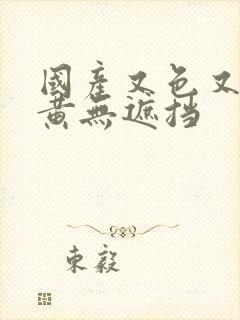 國產又色又
黃無遮挡
東毅